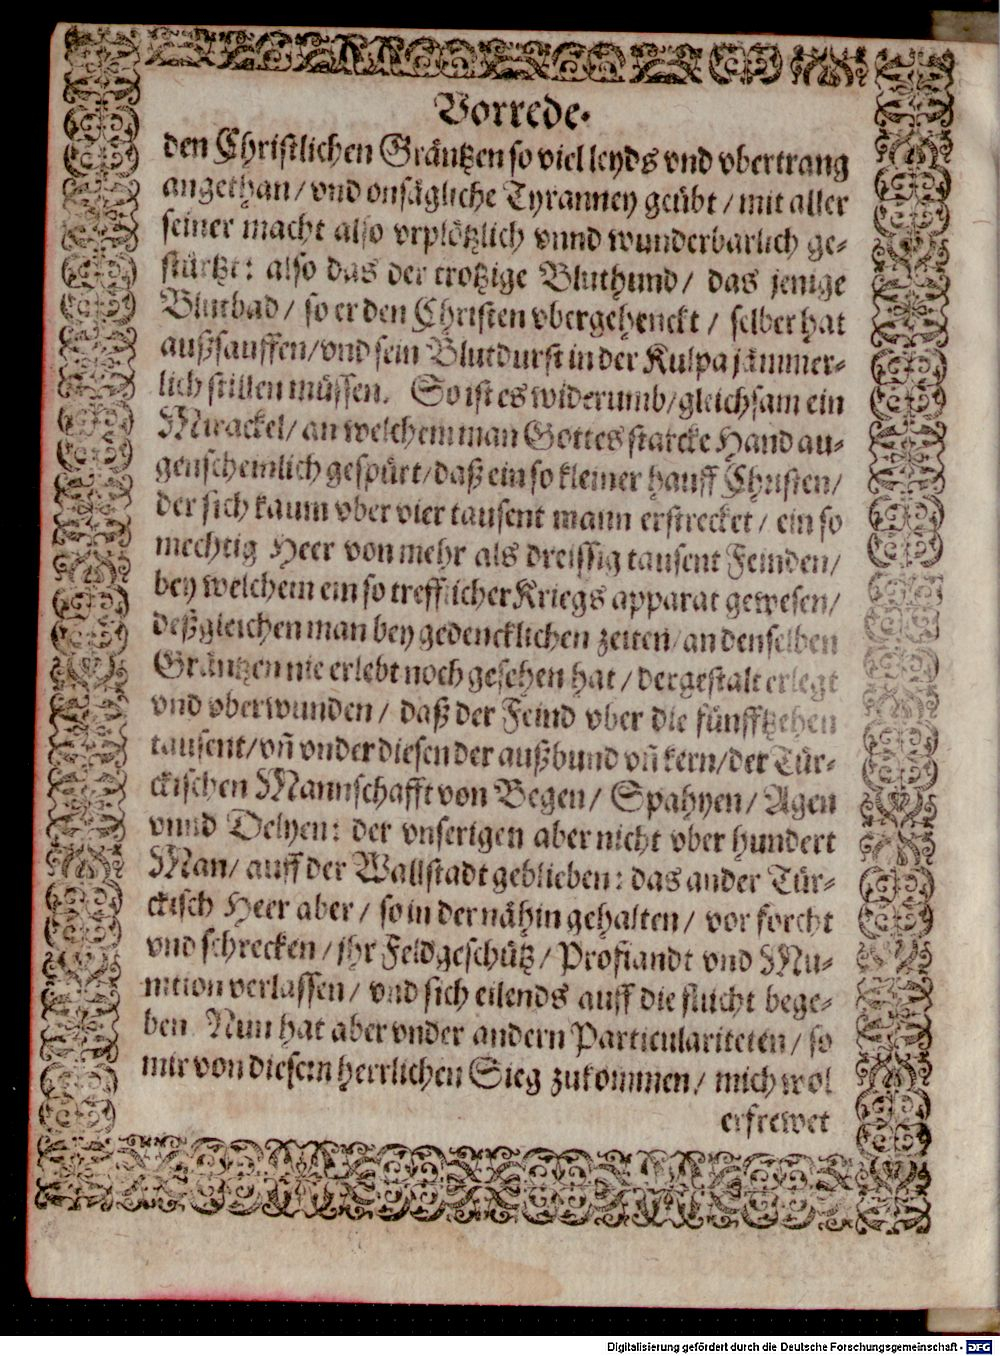 Vorrede.
den Christlichen Gräntzen so viel leyds vnd vbertrang
angethan / vnd onsägliche Tyranney geübt / mit aller
seiner macht also vrplötzlich vnnd wunderbarlich ge-
stürtzt: also das der trotzige Bluthund / das jenige
Blutbad / so er den Christen vbergehenckt / selber hat
außsauffen / vnd sein Blutdurst in der Kulpa jämmer-
lich stillen müssen. So ist es widerumb / gleichsam ein
Mirackel / an welchem man Gottes starcke Hand au-
genscheinlich gespürt / daß ein so kleiner hauff Christen /
der sich kaum vber vier tausent mann erstrecket / ein so
mechtig Heer von mehr als dreissig tausent Feinden /
bey welchem ein so trefflicher Kriegs apparat gewesen /
deßgleichen man bey gedencklichen zeiten / an denselben
Gräntzen nie erlebt noch gesehen hat / dergestalt erlegt
vnd vberwunden / daß der Feind vber die fünfftzehen
tausent / vñ vnder diesen der außbund vñ kern / der Tür-
ckischen Mannschafft von Begen / Spahyen / Agen
vnnd Delyen: der vnserigen aber nicht vber hundert
Man / auff der Wallstadt geblieben: das ander Tür-
ckisch Heer aber / so in der nähin gehalten / vor forcht
vnd schrecken / jhr Feldgeschütz / Profiandt vnd Mu-
nition verlassen / vnd sich eilends auff die flucht bege-
ben. Nun hat aber vnder andern Particulariteten / so
mir von diesem herrlichen Sieg zukommen / mich wol
erfrewet
Digitalisierung gefördert durch die Deutsche Forschungsgemeinschaft - DFG